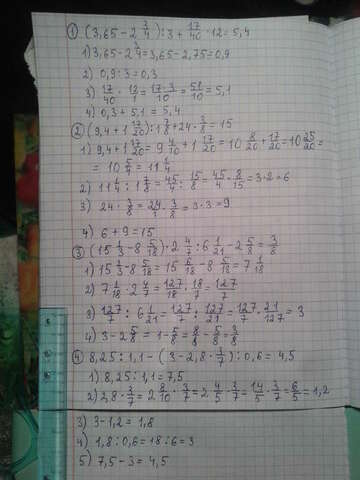 ① (3,65-2 3/4):3+17/40·12=5,4
1) 3,65-2 3/4=3,65-2,75=0,9
2) 0,9:3=0,3
3) 17/40·12/1=17·3/10=51/10=5,1
4) 0,3+5,1=5,4
② (9,4+1 17/20):1 7/8+24·3/8=15
1) 9,4+1 17/20=9 4/10+1 17/20=10 8/20+17/20=10 25/20=
=10 5/4=11 1/4
2) 11 1/4:1 7/8=45/4:15/8=45/4·8/15=3·2=6
3) 24·3/8=24/1·3/8=3·3=9
4) 6+9=15
③ (15 1/3-8 5/18)·2 4/7:6 1/21-2 5/8=3/8
1) 15 1/3-8 5/18=15 6/18-8 5/18=7 1/18
2) 7 1/18·2 4/7=127/18·18/7=127/7
3) 127/7:6 1/21=127/7:127/21=127/7·21/127=3
4) 3-2 5/8=1-5/8=8/8-5/8=3/8
④ 8,25:1,1-(3-2,8·3/7):0,6=4,5
1) 8,25:1,1=7,5
2) 2,8·3/7=2 8/10·3/7=2 4/5·3/7=14/5·3/7=6/5=1,2
3) 3-1,2=1,8
4) 1,8:0,6=18:6=3
5) 7,5-3=4,5